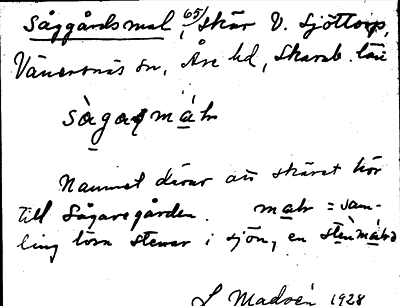 Såggårdsmal, 65/, skär V. Sjöttorp,
Vänersnäs sn, Åse hd, Skarab. län
Namnet därav att skäret hör
till Sågaregården. mal = sam-
ling lösa stenar i sjön, en
L Madsén 1928